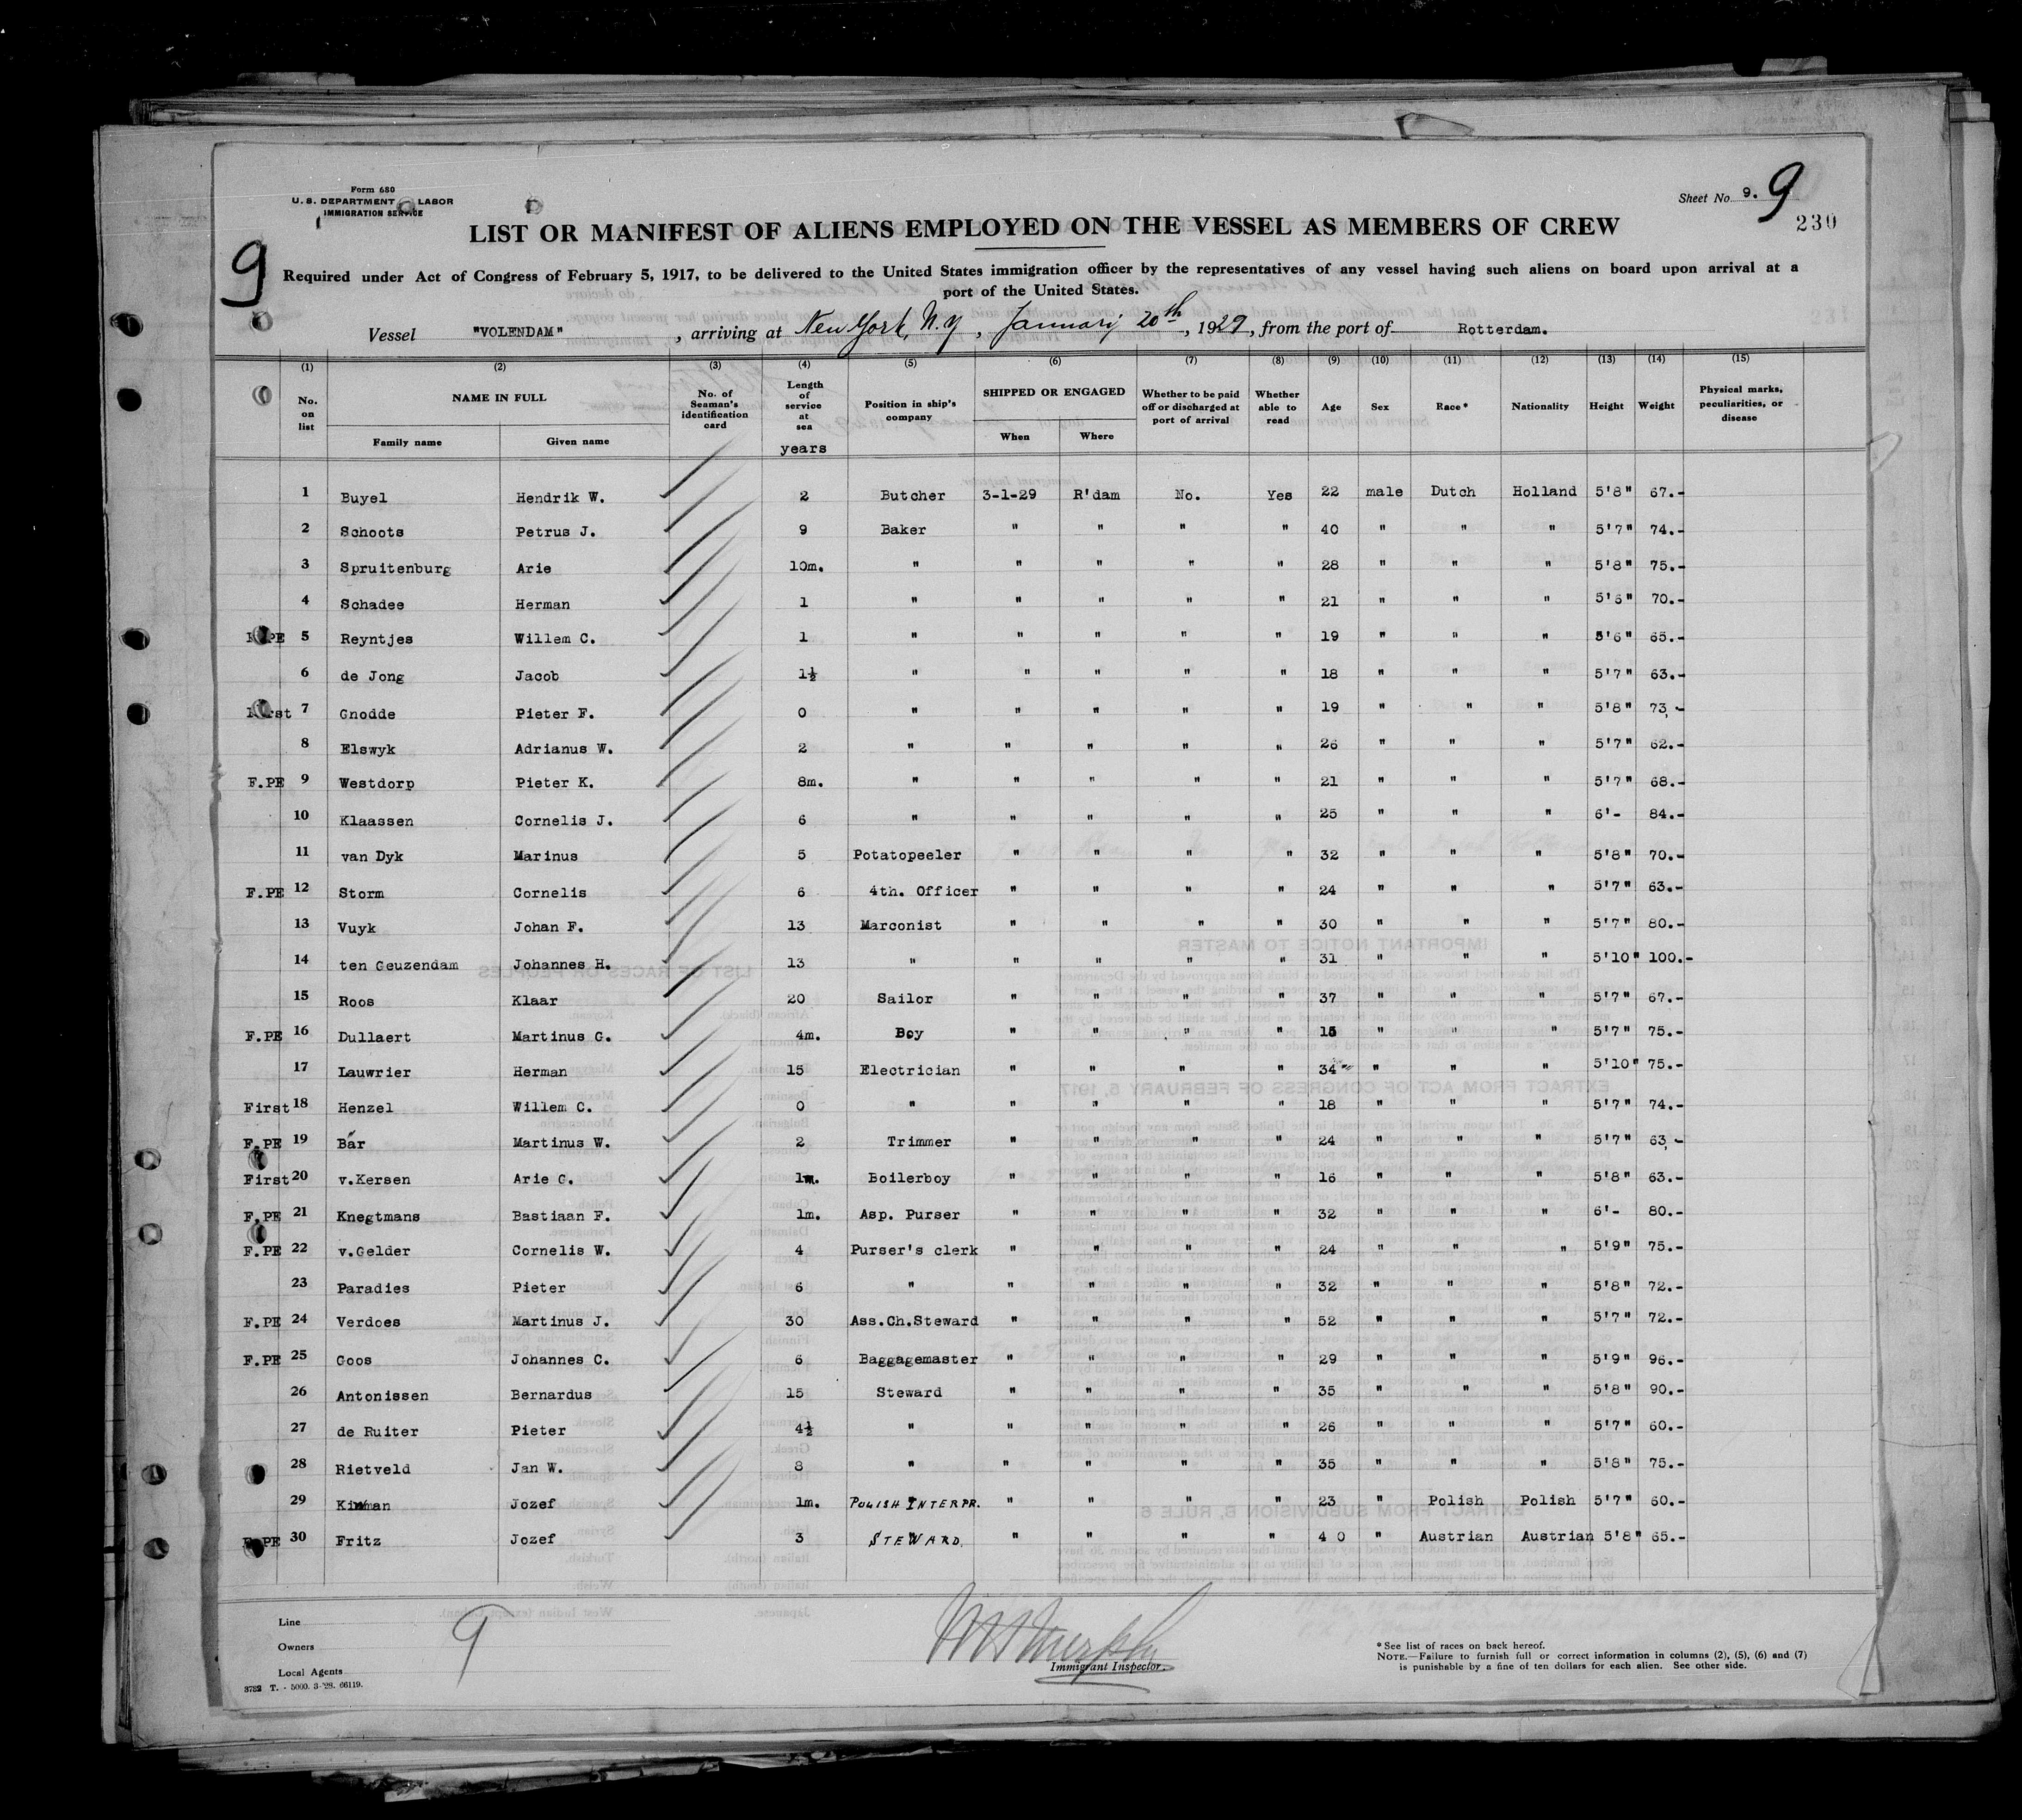 Form 680
U. S. DEPARTMENT LABOR
IMMIGRATION SERVICE
Sheet No. 9. 9
230
9
LIST OR MANIFEST OF ALIENS EMPLOYED ON THE VESSEL AS MEMBERS OF CREW
Required under Act of Congress of February 5, 1917, to be delivered to the United States immigration officer by the representatives of any vessel having such aliens on board upon arrival at a
port of the United States.
Vessel "VOLENDAM" , arriving at New York, N.Y , January 20th , 1929 , from the port of Rotterdam.
(1) (2) (3) (4) (5) (6) (7) (8) (9) (10) (11) (12) (13) (14) (15)
No. on list NAME IN FULL Family name Given name No. of Seaman's identification card Length of service at sea years Position in ship's company SHIPPED OR ENGAGED When Where Whether to be paid off or discharged at port of arrival Whether able to read Age Sex Race* Nationality Height Weight Physical marks, peculiarities, or disease
1 Buyel Hendrik W. 2 Butcher 3-1-29 R'dam No. Yes 22 male Dutch Holland 5'8" 67.-
2 Schoots Petrus J. 9 Baker " " " " 40 " " " 5'7" 74.-
3 Spruitenburg Arie 10m. " " " " " 28 " " " 5'8" 75.-
4 Schadee Herman 1 " " " " " 21 " " " 5'6" 70.-
PE 5 Reyntjes Willem C. 1 " " " " " 19 " " " 5'6" 65.-
6 de Jong Jacob 1½ " " " " " 18 " " " 5'7" 63.-
First 7 Gnodde Pieter F. 0 " " " " " 19 " " " 5'8" 73,-
8 Elswyk Adrianus W. 2 " " " " " 26 " " " 5'7" 62.-
F.PE 9 Westdorp Pieter K. 8m. " " " " " 21 " " " 5'7" 68.-
10 Klaassen Cornelis J. 6 " " " " " 25 " " " 6'- 84.-
11 van Dyk Marinus 5 Potatopeeler " " " " 32 " " " 5'8" 70.-
F.PE 12 Storm Cornelis 6 4th. Officer " " " " 24 " " " 5'7" 63.-
13 Vuyk Johan F. 13 Marconist " " " " 30 " " " 5'7" 80.-
14 ten Geuzendam Johannes H. 13 " " " " " 31 " " " 5'10" 100.-
15 Roos Klaar 20 Sailor " " " " 37 " " " 5'7" 67.-
F.PE 16 Dullaert Martinus G. 4m. Boy " " " " " " " 5'7" 75.-
17 Lauwrier Herman 15 Electrician " " " " 34 " " " 5'10" 75.-
First 18 Henzel Willem C. 0 " " " " " 18 " " " 5'7" 74.-
F.PE 19 Bár Martinus W. 2 Trimmer " " " " 24 " " " 5'7" 63,-
First 20 v.Kersen Arie C. 1m. Boilerboy " " " " 16 " " " 5'8" 63.-
F.PE 21 Knegtmans Bastiaan F. 1m. Asp. Purser " " " " 32 " " " 6'- 80.-
F.PE 22 v.Gelder Cornelis W. 4 Purser's clerk " " " " 24 " " " 5'9" 75.-
23 Paradies Pieter 6 " " " " " 32 " " " 5'8" 72.-
F.PE 24 Verdoes Martinus J. 30 Ass.Ch.Steward " " " " 52 " " " 5'7" 72.-
F.PE 25 Goos Johannes C. 6 Baggagemaster " " " " 29 " " " 5'9" 96.-
26 Antonissen Bernardus 15 Steward " " " " 35 " " " 5'8" 90.-
27 de Ruiter Pieter 4½ " " " " " 26 " " " 5'7" 60.-
28 Rietveld Jan W. 8 " " " " " 35 " " " 5'8" 75.-
29 Jozef 1m. POLISH INTERPR. " " " " 23 " Polish Polish 5'7" 60.-
PE 30 Fritz Jozef 3 STEWARD. " " " " 40 " Austrian Austrian 5'8" 65.-
Line
Owners
Local Agents
9
Murphy
Immigrant Inspector.
* See list of races on back hereof.
NOTE.—Failure to furnish full or correct information in columns (2), (5), (6) and (7)
is punishable by a fine of ten dollars for each alien. See other side.
3732 T. - 5000. 3-'28. 66119.